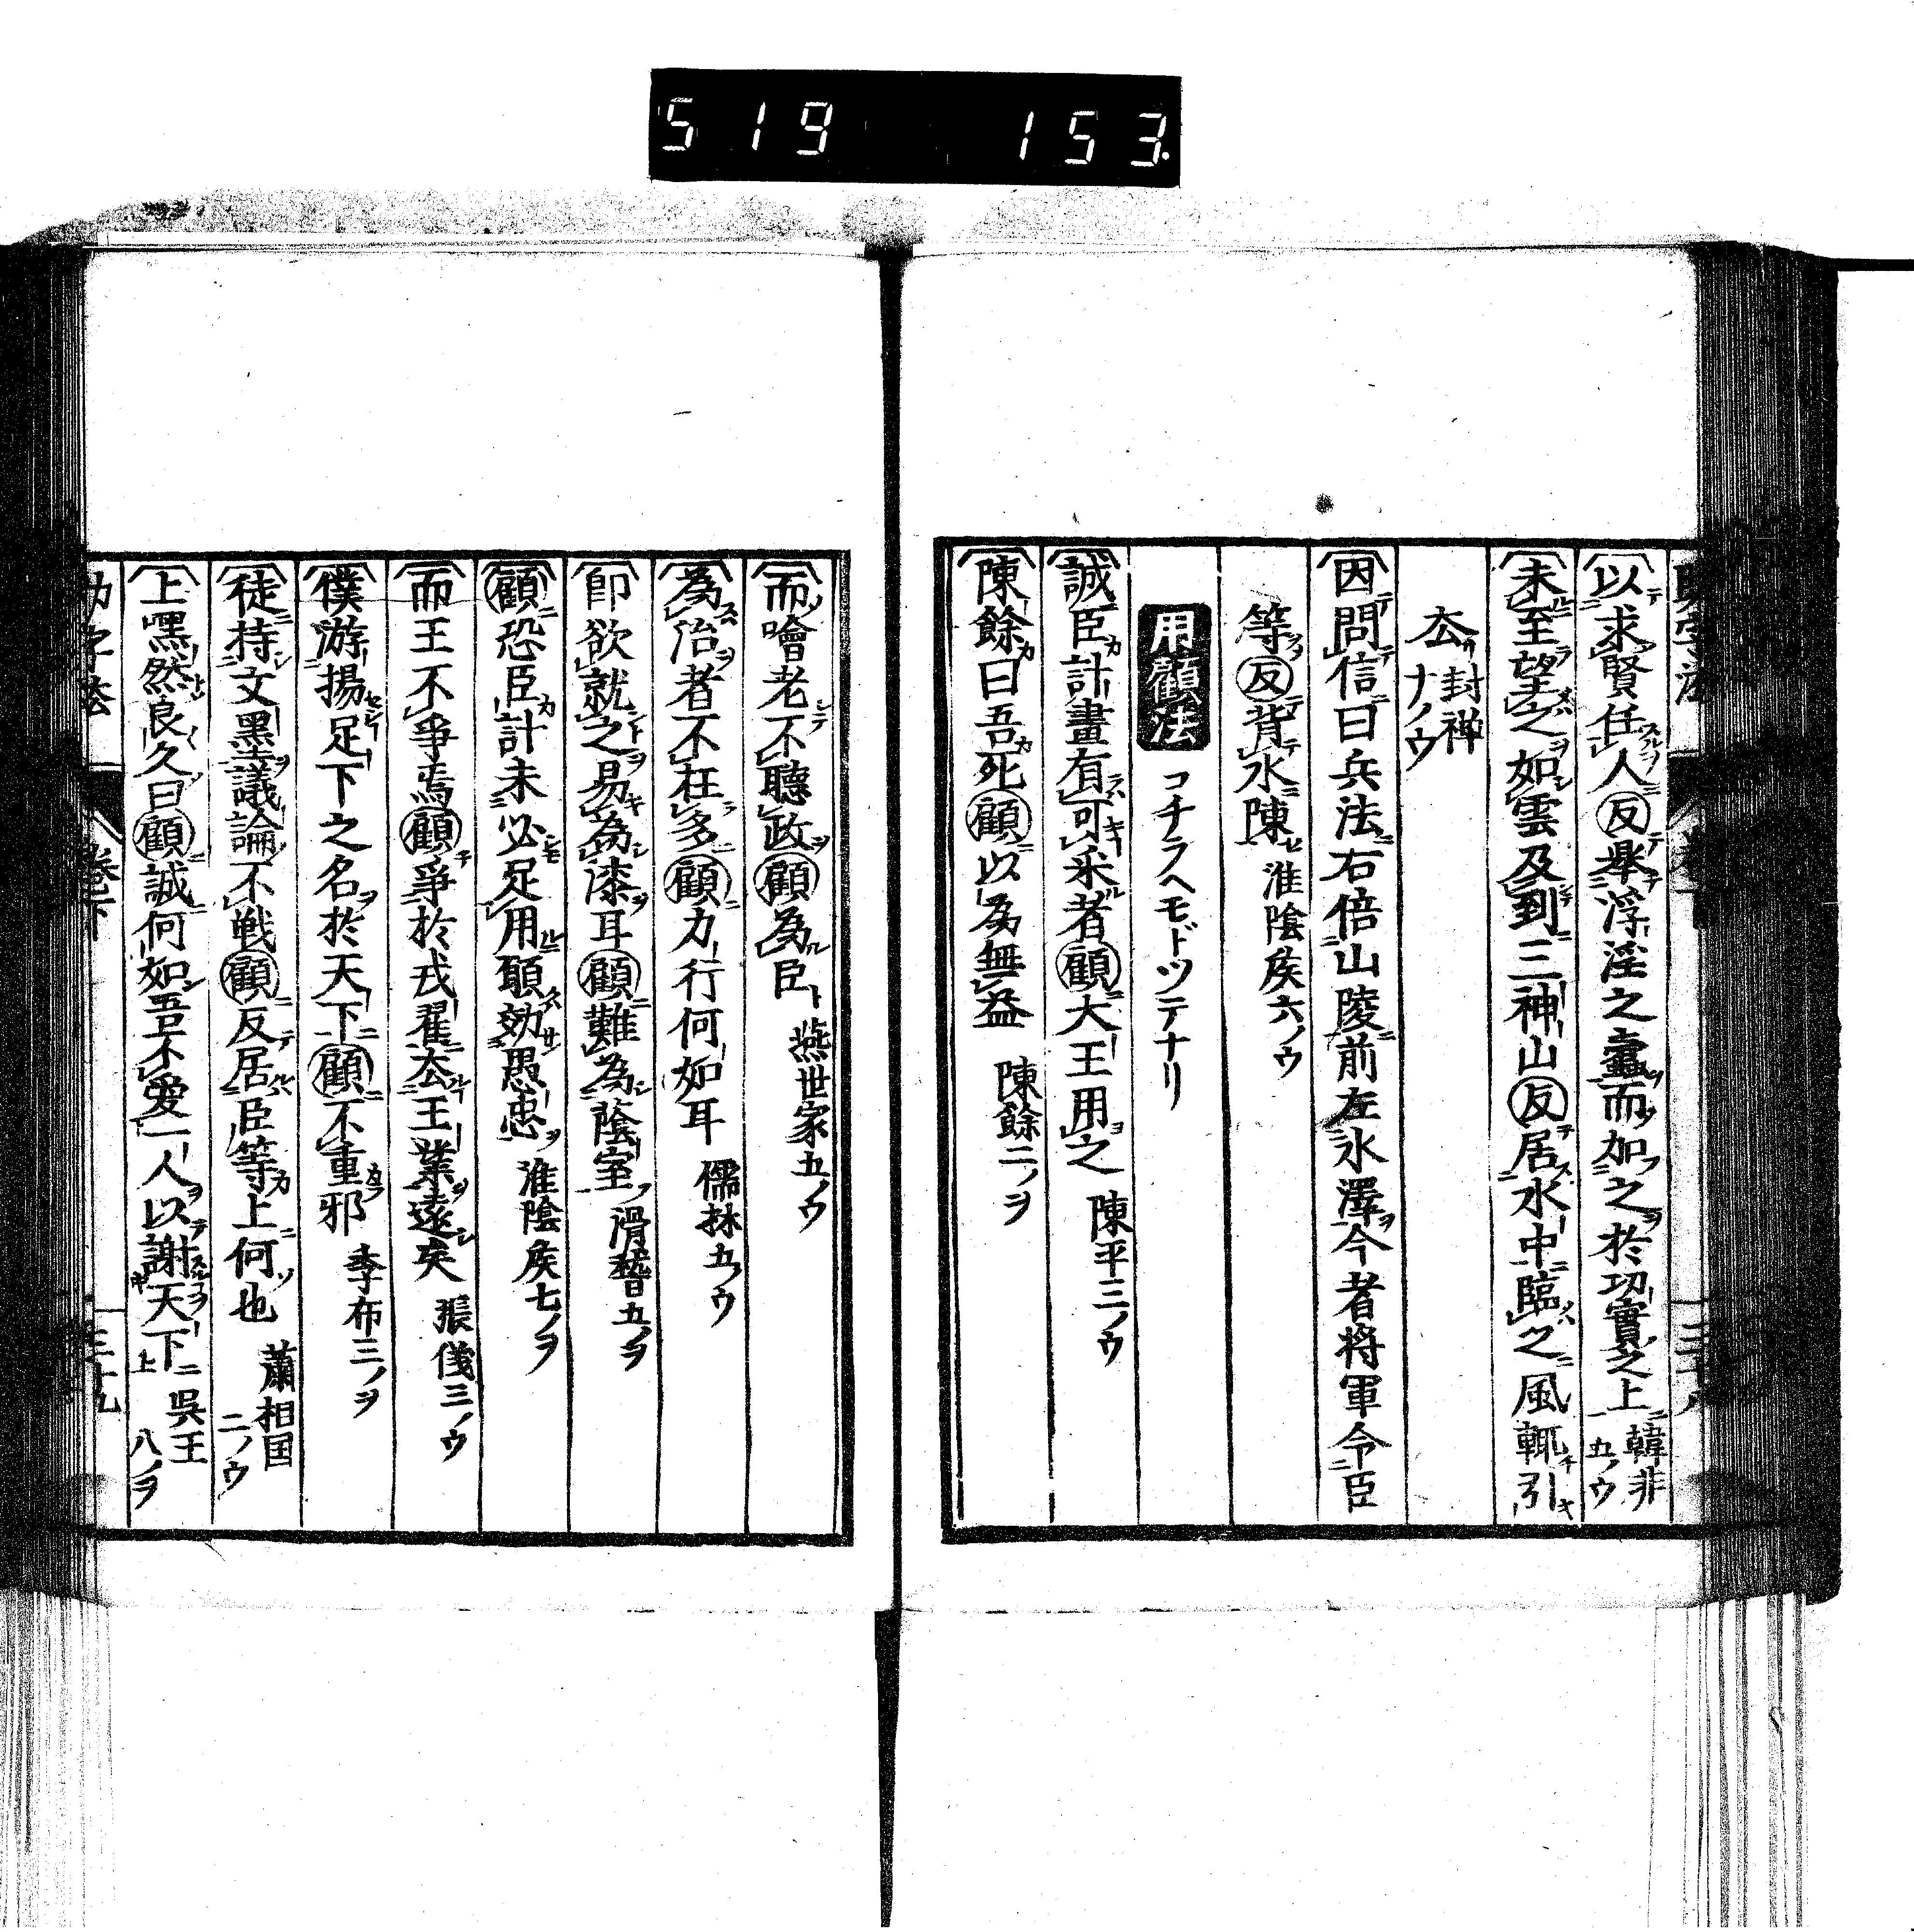 519 153.
以求賢任人反舉浮淫之蠹而加之於功實之上 韓非五ノウ
未至望之如雲及到三神山反居水中臨之風輒引
去 封禅ナノウ
因問信曰兵法右倍山陵前左水澤今者将軍令臣
等反背水陳 淮陰矦六ノウ
用顧法 コチラヘモドツテナリ
誠臣計畫有可采者顧大王用之 陳平三ノウ
陳餘曰吾死顧以為無益 陳餘二ノヲ
而噲老不聽政顧為臣 燕世家五ノウ
為治者不在多顧力行何如耳 儒林五ノウ
即欲就之易為漆耳顧難為蔭室 滑稽五ノヲ
顧恐臣計未必足用願効愚忠 淮陰矦七ノヲ
而王不爭焉顧爭於戎翟去王業遠矣 張儀三ノウ
僕游揚足下之名於天下顧不重邪 季布三ノヲ
徒持文墨議論不戦顧反居臣等上何也 蕭相国二ノウ
上嘿然良久曰顧誠何如吾不愛一人以謝天下 呉王八ノヲ
助字法 巻下 三十九